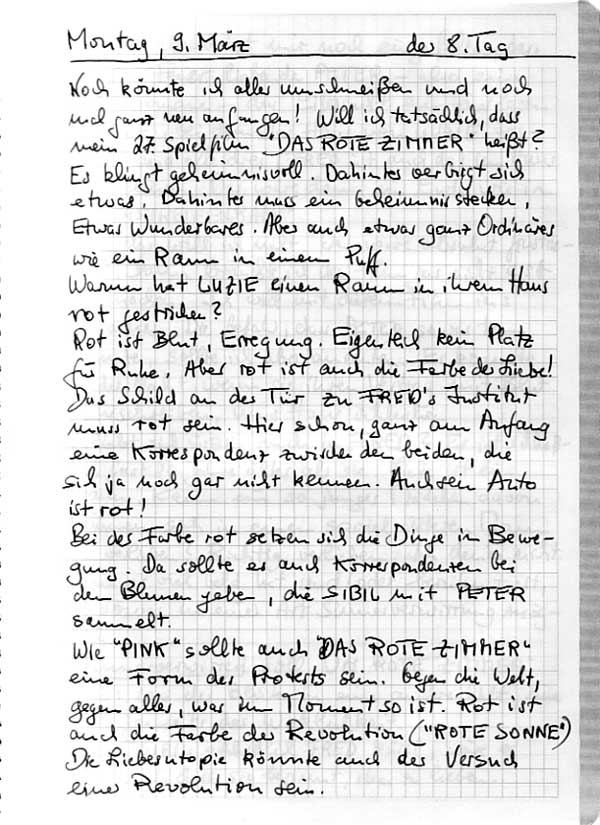 Montag, 9. März der 8. Tag
Noch könnte ich alles umschmeißen und noch
mal ganz neu anfangen! Will ich tatsächlich, dass
mein 27. Spielfilm "DAS ROTE ZIMMER" heißt?
Es klingt geheimnisvoll. Dahinter verbirgt sich
etwas. Dahinter muss ein Geheimnis stecken,
Etwas Wunderbares. Aber auch etwas ganz Ordinäres
wie ein Raum in einem Puff.
Warum hat LUZIE einen Raum in ihrem Haus
rot gestrichen?
Rot ist Blut, Erregung. Eigentlich kein Platz
für Ruhe. Aber rot ist auch die Farbe der Liebe!
Das Schild an der Tür zu FRED's Institut
muss rot sein. Hier schon, ganz am Anfang
eine Korrespondenz zwischen den beiden, die
sich ja noch gar nicht kennen. Auch sein Auto
ist rot!
Bei der Farbe rot setzen sich die Dinge in Bewe-
gung. Da sollte es auch Korrespondenzen bei
den Blumen geben, die SIBIL mit PETER
sammelt.
Wie "PINK" sollte auch "DAS ROTE ZIMMER"
eine Form des Protests sein. Gegen die Welt,
gegen alles, was im Moment so ist. Rot ist
auch die Farbe der Revolution ("ROTE SONNE")
Die Liebesutopie könnte auch der Versuch
einer Revolution sein.